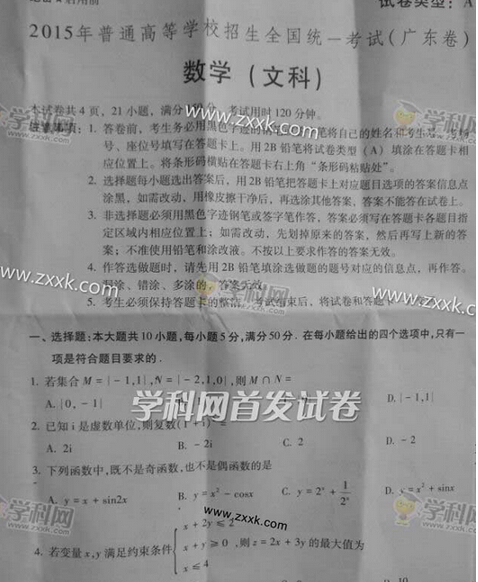 试卷类型：A
2015年普通高等学校招生全国统一考试（广东卷）
数学（文科）
本试卷共4页，21小题，满分 分，考试用时120分钟。
注意事项：1. 答卷前，考生务必用黑色字迹 笔将自己的姓名和考生号、考场
号、座位号填写在答题卡上。用2B铅笔将试卷类型（A）填涂在答题卡相
应位置上。将条形码横贴在答题卡右上角“条形码粘贴处”。
2. 选择题每小题选出答案后，用2B铅笔把答题卡上对应题目选项的答案信息点
涂黑，如需改动，用橡皮擦干净后，再选涂其他答案，答案不能答在试卷上。
3. 非选择题必须用黑色字迹钢笔或签字笔作答，答案必须写在答题卡各题目指
定区域内相应位置上；如需改动，先划掉原来的答案，然后再写上新的答
案；不准使用铅笔和涂改液。不按以上要求作答的答案无效。
4. 作答选做题时，请先用2B铅笔填涂选做题的题号对应的信息点，再作答。
涂、错涂、多涂的，答案无效。
5. 考生必须保持答题卡的整洁。考试结束后，将试卷和答题卡
一、选择题：本大题共10小题，每小题5分，满分50分．在每小题给出的四个选项中，只有一
项是符合题目要求的．
1. 若集合M=|-1,1|,N=|-2,1,0|,则M∩N=
A. |0，-1| D. |-1,1|
2. 已知i是虚数单位,则复数(1+i)²=
A. 2i B. -2i C. 2 D. -2
3. 下列函数中,既不是奇函数,也不是偶函数的是
A. y=x+sin2x B. y=x²-cosx C. y=2ˣ+1/2ˣ D. y=x²+sinx
x+2y≤2
4. 若变量x,y满足约束条件 x+y≥0 ,则z=2x+3y的最大值为
x≤4
学科网
www.zxxk.com
www.zxxk.com
www.zxxk.com
学科网首发试卷
学科网
www.zxxk.com
学科网